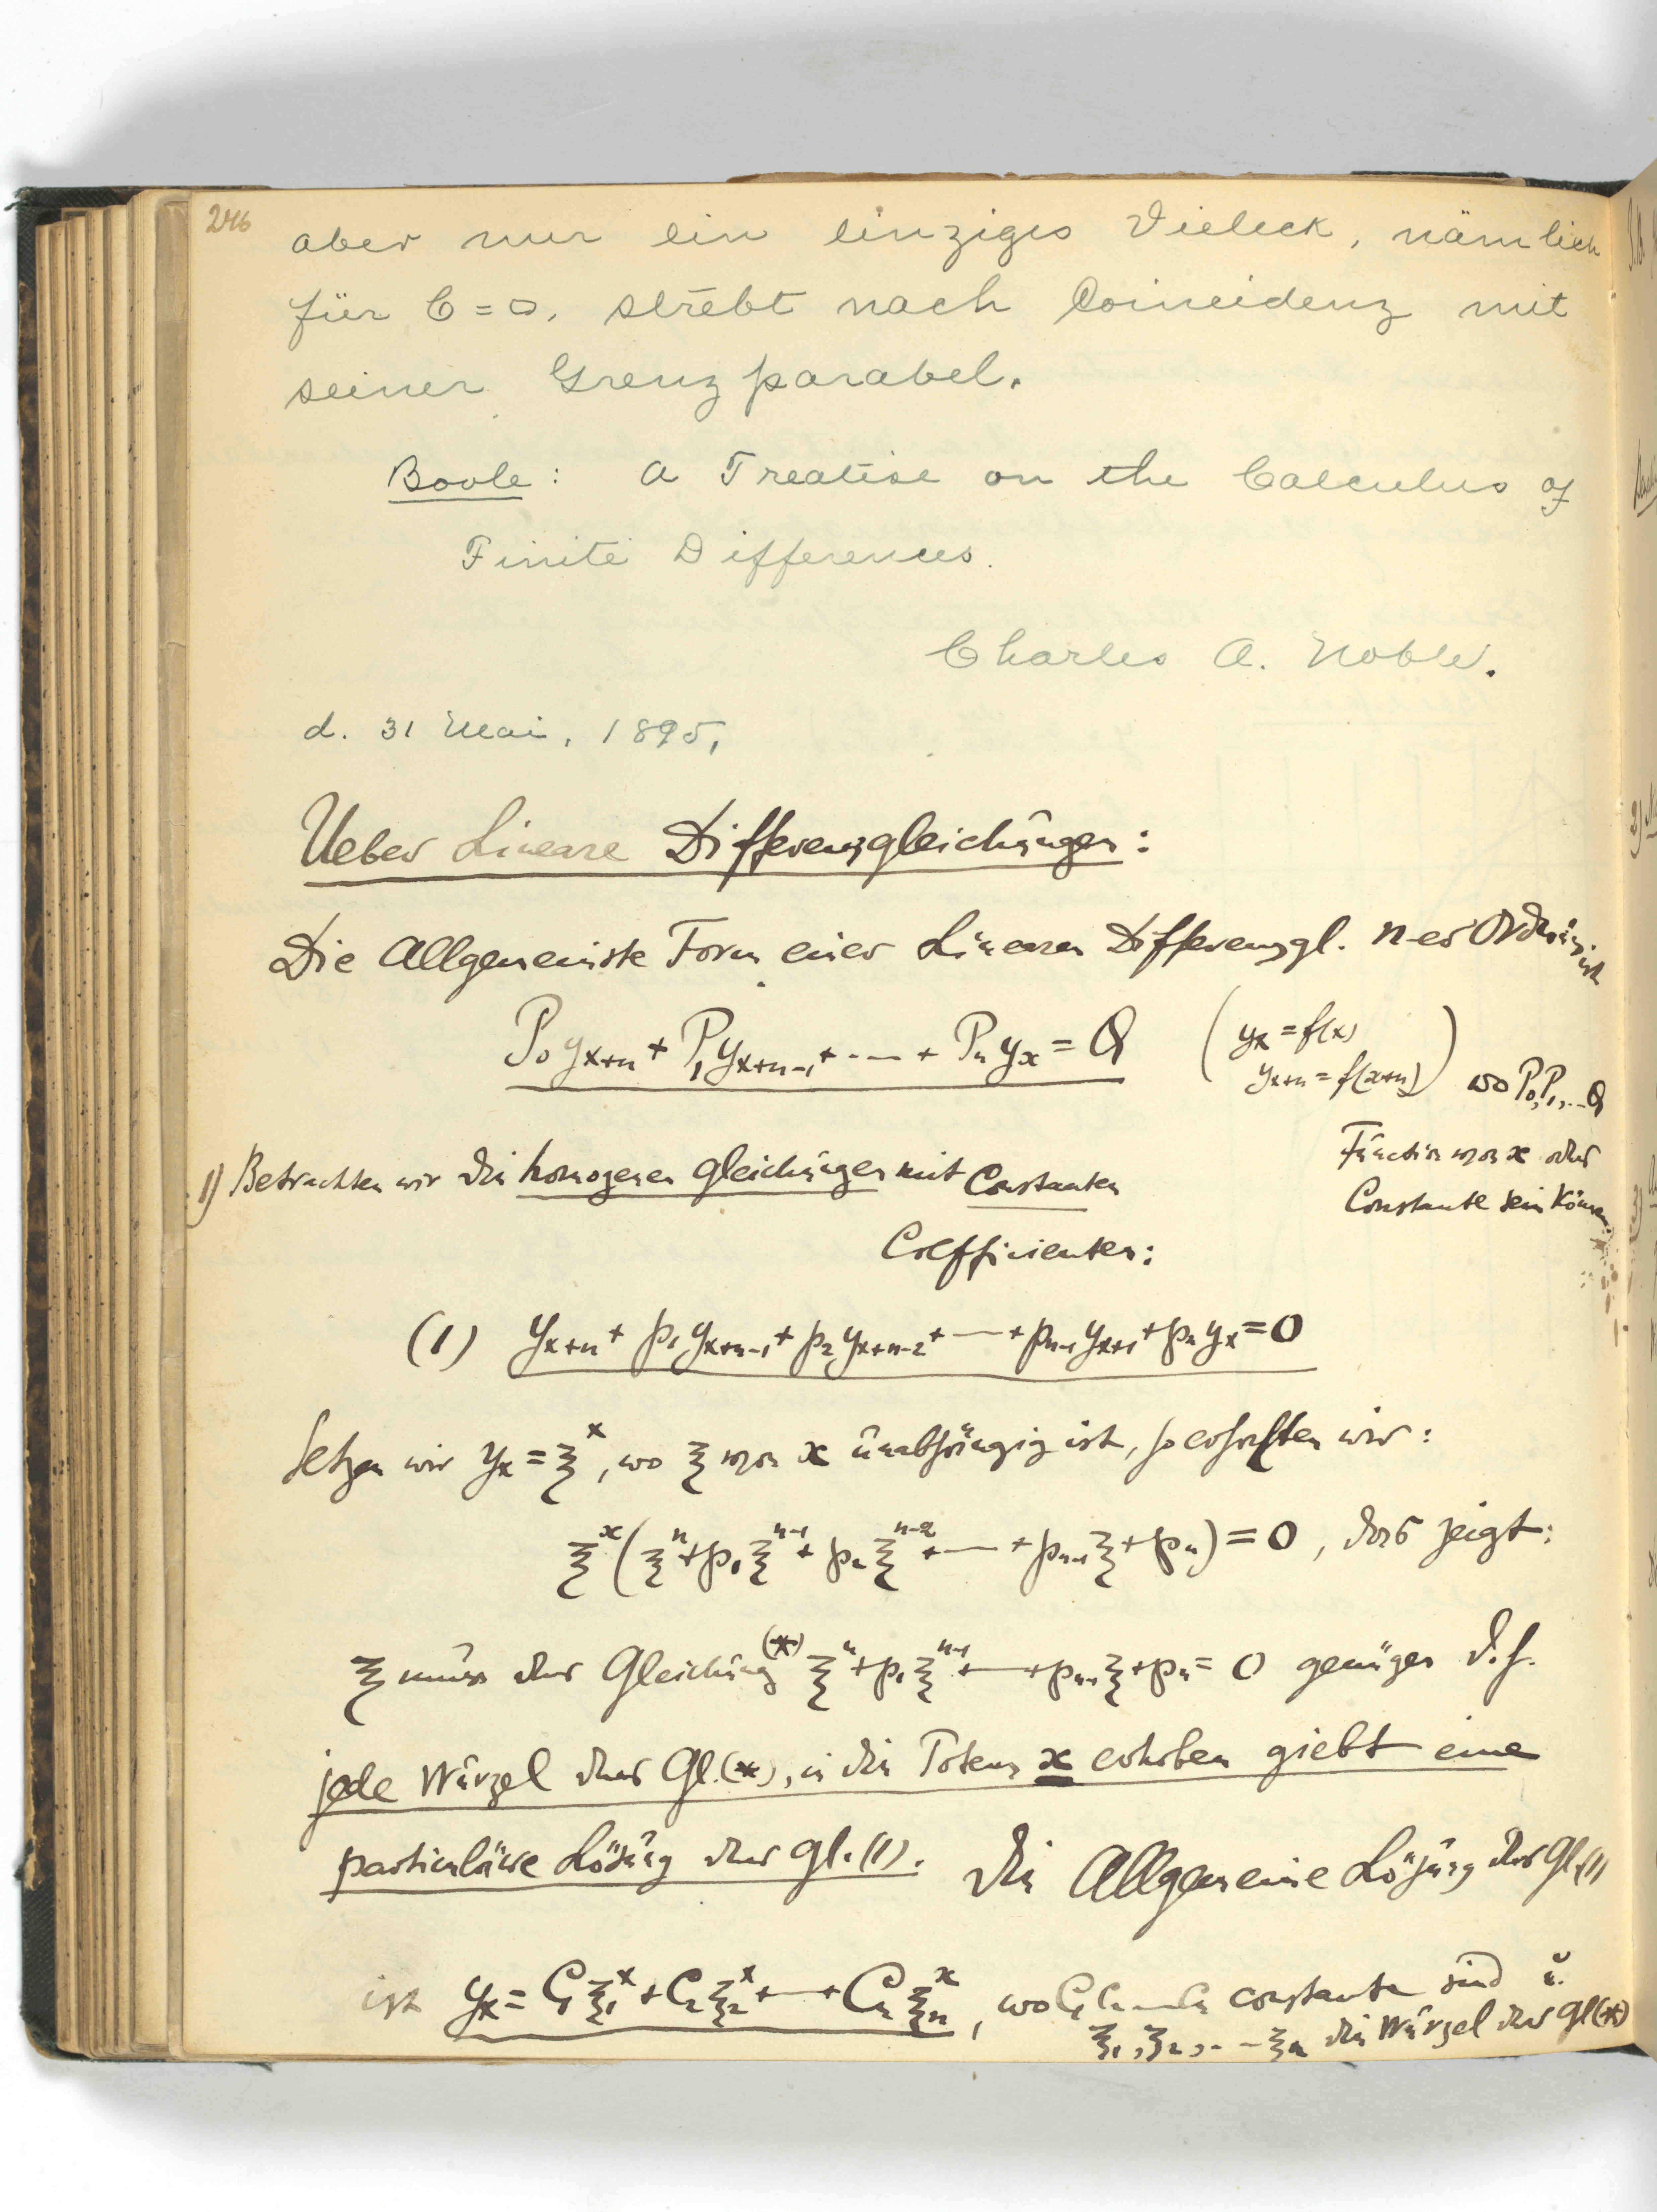 246
aber nur ein einziges Vieleck, nämlich
für C = 0, strebt nach Coincidenz mit
seiner Grenzparabel.
Boole: A Treatise on the Calculus of
Finite Differences.
Charles A. Noble.
d. 31 Mai, 1895,
Ueber Lineare Differenzgleichungen:
Die Allgemeinste Form einer Linearen Differenzgl. n-er Ordnung ist
P₀yₓ₊ₙ + P₁yₓ₊ₙ₋₁ + ·—· + Pₙyₓ = Q (yₓ = f(x)
yₓ₊ₙ = f(x+n)) wo P₀, P₁, .. Q
Function von x oder
Constante sein können
1) Betrachten wir die homogenen Gleichungen mit Constanten
Coefficienten:
(1) yₓ₊ₙ + p₁yₓ₊ₙ₋₁ + p₂yₓ₊ₙ₋₂ + — + pₙ₋₁yₓ₊₁ + pₙyₓ = 0
Setzen wir yₓ = ξˣ, wo ξ von x unabhängig ist, so erhalten wir:
ξˣ(ξⁿ + p₁ξⁿ⁻¹ + p₂ξⁿ⁻² + — + pₙ₋₁ξ + pₙ) = 0, das zeigt:
ξ muss der Gleichung (*) ξⁿ + p₁ξⁿ⁻¹ + — + pₙ₋₁ξ + pₙ = 0 genügen d.h.
jede Wurzel der Gl.(*), in die Potenz x erhoben giebt eine
particuläre Lösung der Gl.(1). Die Allgemeine Lösung der Gl.(1)
ist yₓ = C₁ξ₁ˣ + C₂ξ₂ˣ + — + Cₙξₙˣ, wo C₁ C₂ — Cₙ constante sind u.
ξ₁, ξ₂, . - ξₙ die Wurzel der Gl(*)